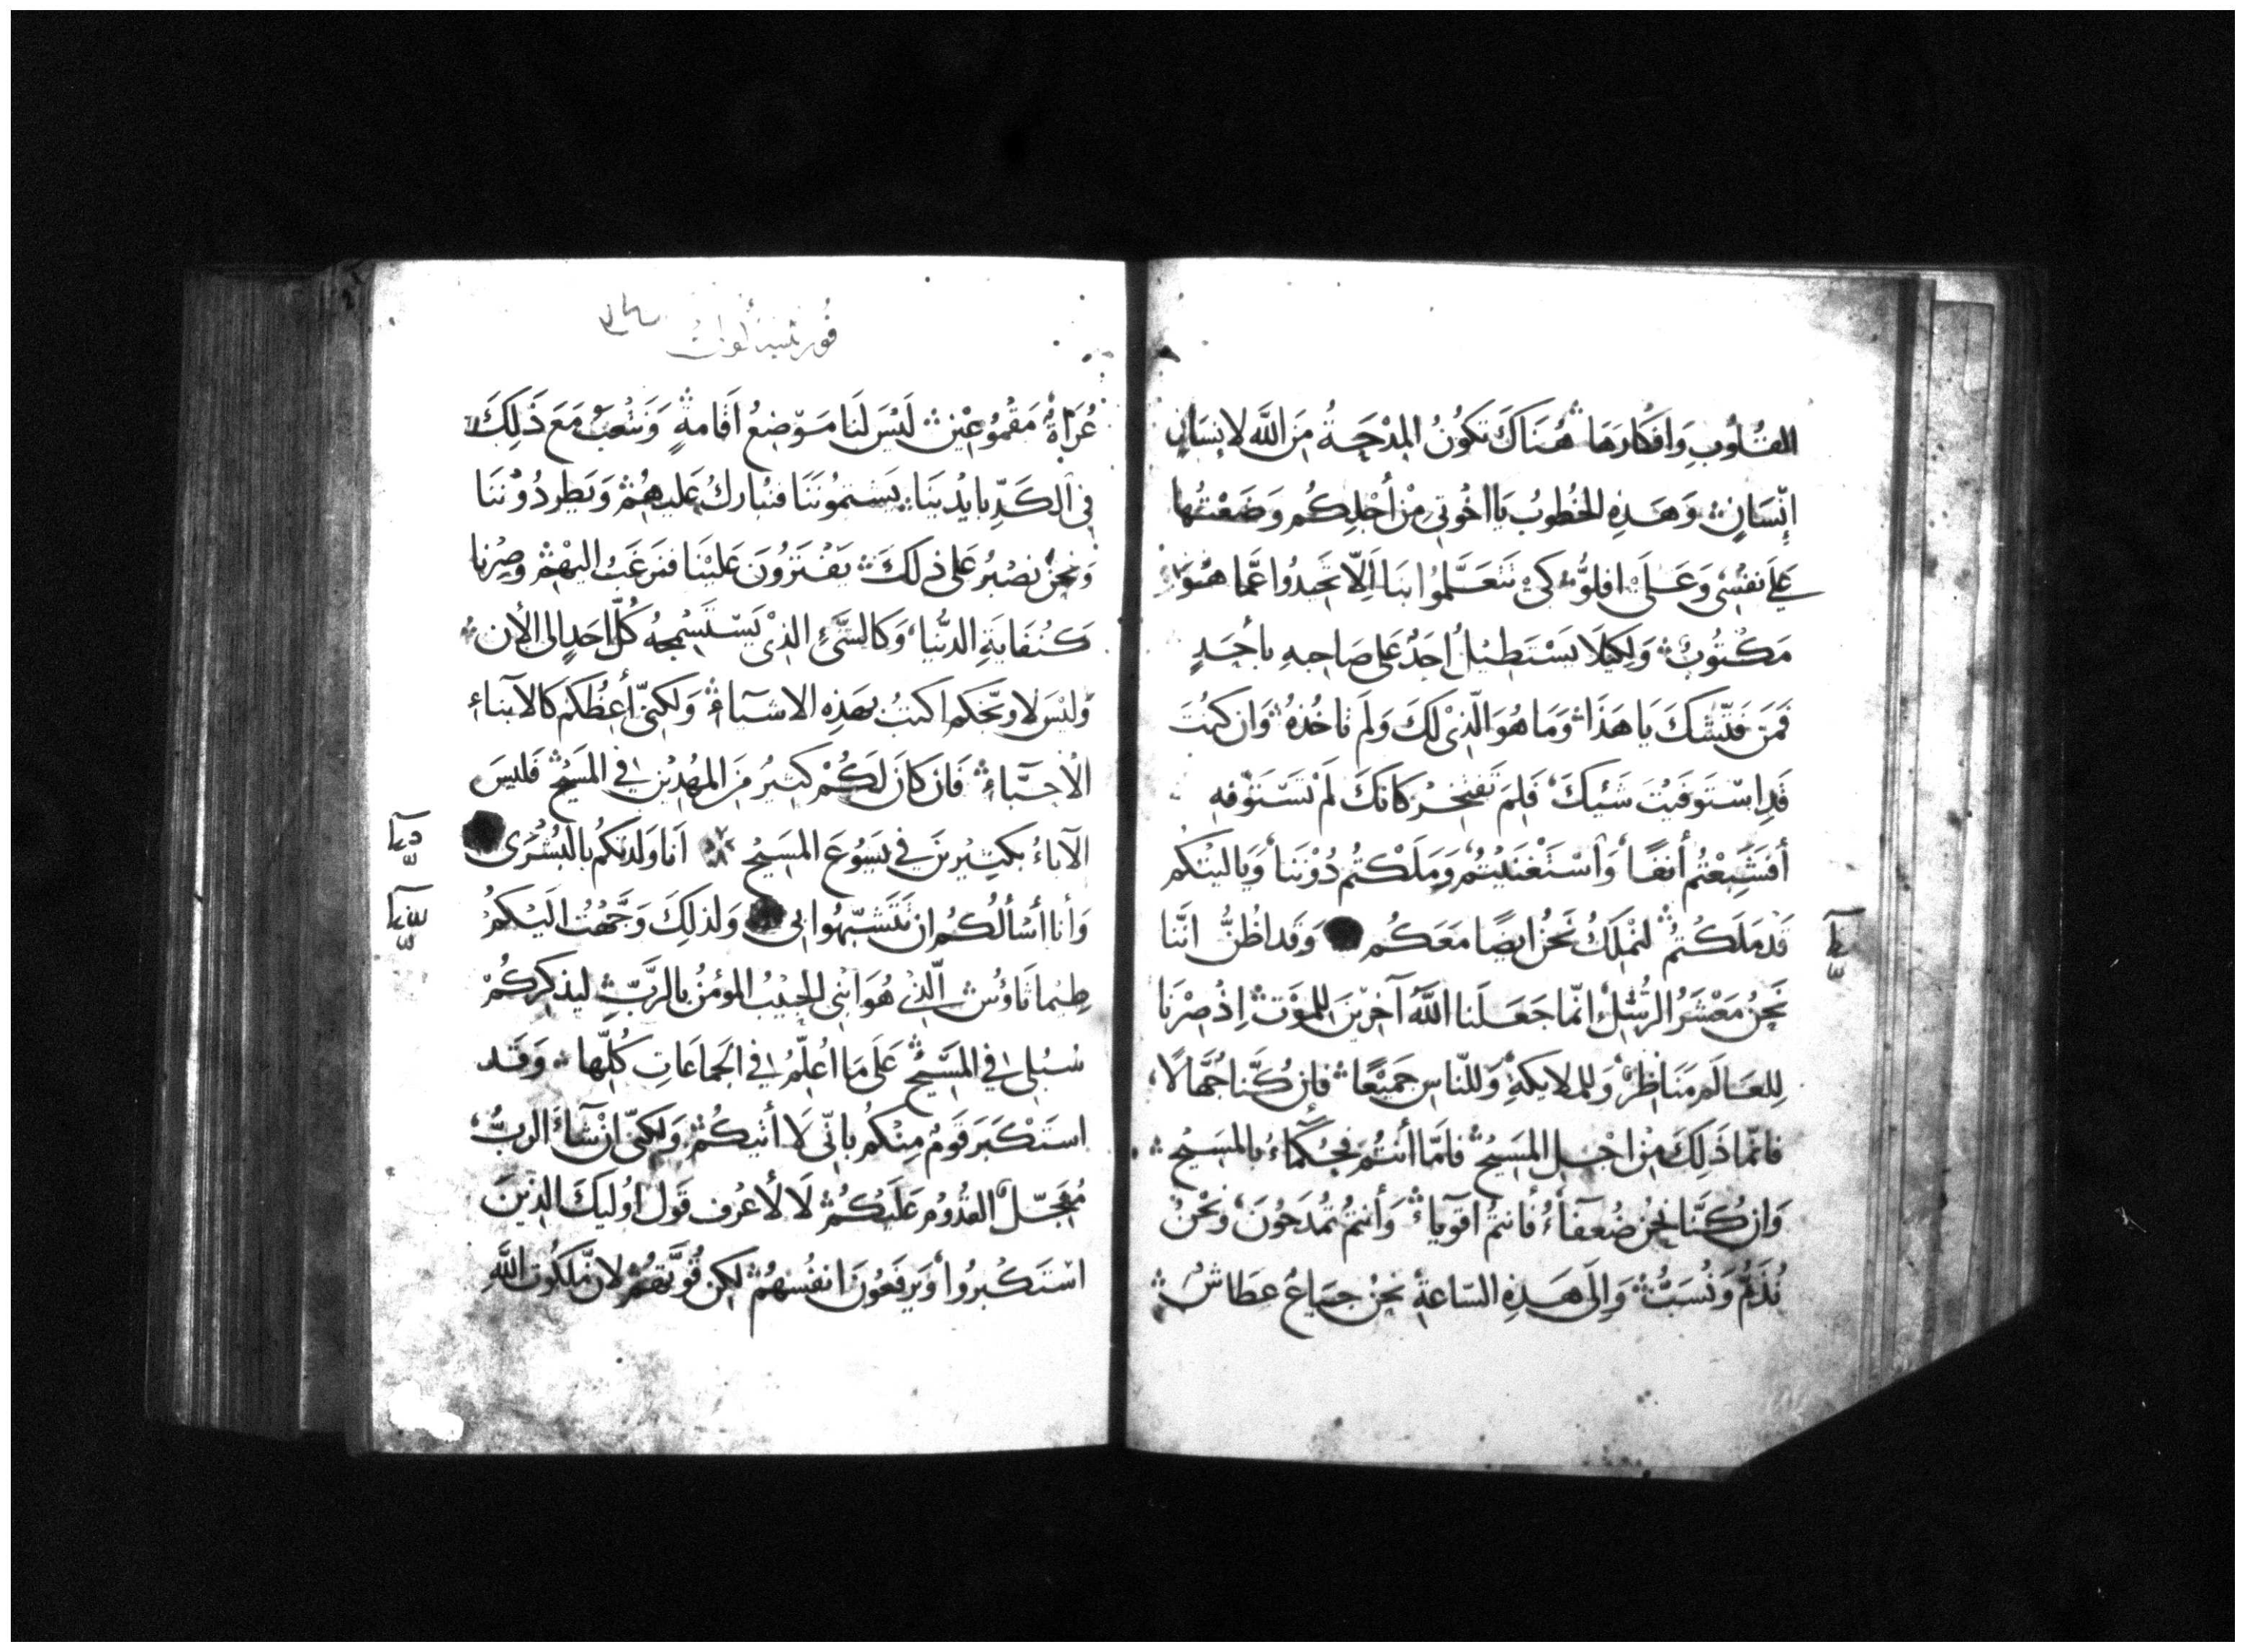 القُلُوبِ وَافكَارَهَا هُنَاكَ تَكُونُ المِدْحَةُ مِنَ اللَّه لانِسَانٍ
إِنْسَانٍ وَهَذِهِ الخُطُوبُ يَا اخُوَتِي مِنْ أَجْلِكُم وَضَعْتُها
عَلَى نفسِى وَعَلَى افلُوُّ كَىْ تَتَعَلَّمُوا بنَا اَلِّا تَحِيدُوا عَّما هُوَ
مَكْتُوبٌ وَلِكَيلَا يَسْتَطيلُ اَحَدٌ عَلى صَاحِبهِ باَحَدٍ
فَمَن فَتّشكَ يَا هَذَا وَمَا هُوَ الّذِى لَكَ وَلَم تاخُذهُ وَان كنتَ
قَدِ اسْتَوفَيتَ شَيئكَ فَلِمَ تَفتَخِرُ كانكَ لَم تَسْتَوفِهِ
أَفَشَبِعْتُم أنفًا وَاَسْتَغْنَيْتُم وَمَلَكْتُم دُوْننَا وَيَا ليْتكُم
قَد مَلَكْتُم لنملكُ نَحْنُ ايضًا مَعَكُم وَقَد اظُنُّ انّنا
نَحْنُ مَعْشَرُ الرُسُلِ انّما جَعَلَنا اللَّهُ آخرِينَ للمَوْتِ اِذْ صِرْنَا
لِلعَالَم مَنَاظِر وَللملايكةِ وَللنّاسِ جَميْعًا فاِن كُنَّا جُهَّالًا
فانّما ذَلِكَ مِنْ اجْلِ المَسِيْحِ فامَّا أنتُم فحُكَماءُ بالمسِيْحِ
وَان كُنَّا نحْنُ ضُعَفآءُ فأنتُم اَقوِيَاءُ وَأنتُم تُمدَحُونَ وَنحْنُ
نُذَمُّ وَنُسَبُّ وَاِلَى هَذِهِ السّاعَةِ نحْنُ جيَاعُ عطَاشٌ
عُرَاةٌ مَقْمُوعِيْنَ لَيْسَ لَنَا مَوْضِعُ اَقَامةٍ وَنَتْعَبُ مَعَ ذَلِكَ
فِى الكَدِّ بايْدِينَا يَشتمُونَنَا فنُبارِكُ عَليهِمْ وَيَطردُوْنَنَا
وَنحْنُ نصْبُر عَلى ذلكَ يَفْتَرُونَ عَلَيْنَا فنَرغَبُ اليْهِمْ وصِرْنا
كَنُفَايَةِ الدُّنْيا وَكالشَّىِء الذِىْ يَسْتَسْمِجُهُ كُلّ احَدٍ الى الأن
وَليْسَ لاوبّخكم اكتبُ بهَذِهِ الاشيَاءِ وَلكِنّى أعِظُكم كالآبناءِ
الاَحبَّاءِ فَان كانَ لَكُمْ كثيرُ مِنَ المهُدِيْن فِى المَسِيْح فَليسَ
الآباءُ بكثِيْرينَ فِى يَسُوْعَ المَسَيْحِ اَنا وَلَدتكُم بالبُشْرَى
وَأنا أسْألُكُم ان تَتَشبّهُوا بى وَلذلِكَ وَجَّهْتُ الَيْكُمْ
طِيْماثَاوُسْ الّذِى هُوَ ابنى الحبِيْبُ المؤمنُ بالرَّبِّ ليُذكِرَكُمْ
سُبُلى فِى المَسَيْحِ عَلَى مَا اُعلّمُ فِى الجَمَاعَاتِ كُلِّها وَقَد
استَكْبَرَ قَومٌ مِنْكُم بانّى لَا أتيْكُمْ وَلكِنّى ان شَآءَ الربُّ
مُعَجّلٌ القُدُومِ عَلَيْكُمْ لَا لأعْرف قَولَ اوُليكَ الذِينَ
اسْتَكْبَروُا وَيرفَعُونَ انفُسَهُمْ لكِن قُوَّتَهُم لانَّ مَلكُوتَ اللَّهِ